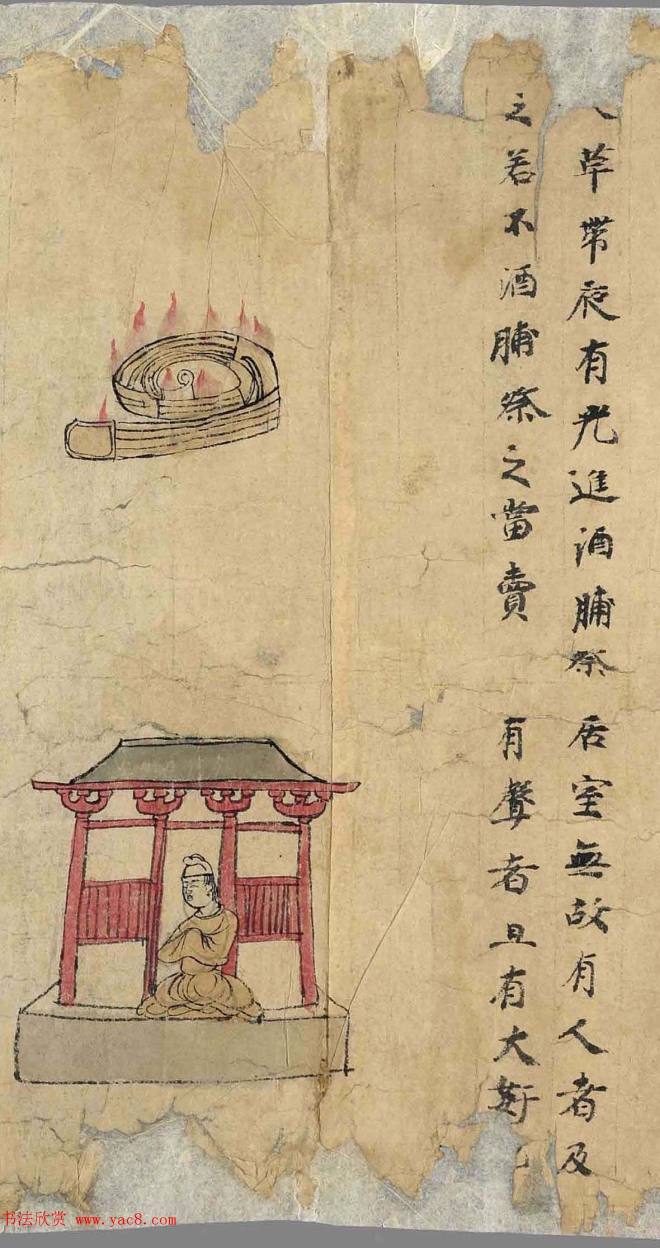 革帶夜有光進酒脯祭
之若不酒脯祭之當賣
居室無故有人者及
有聲者且有大
书法欣赏 www.yac8.com